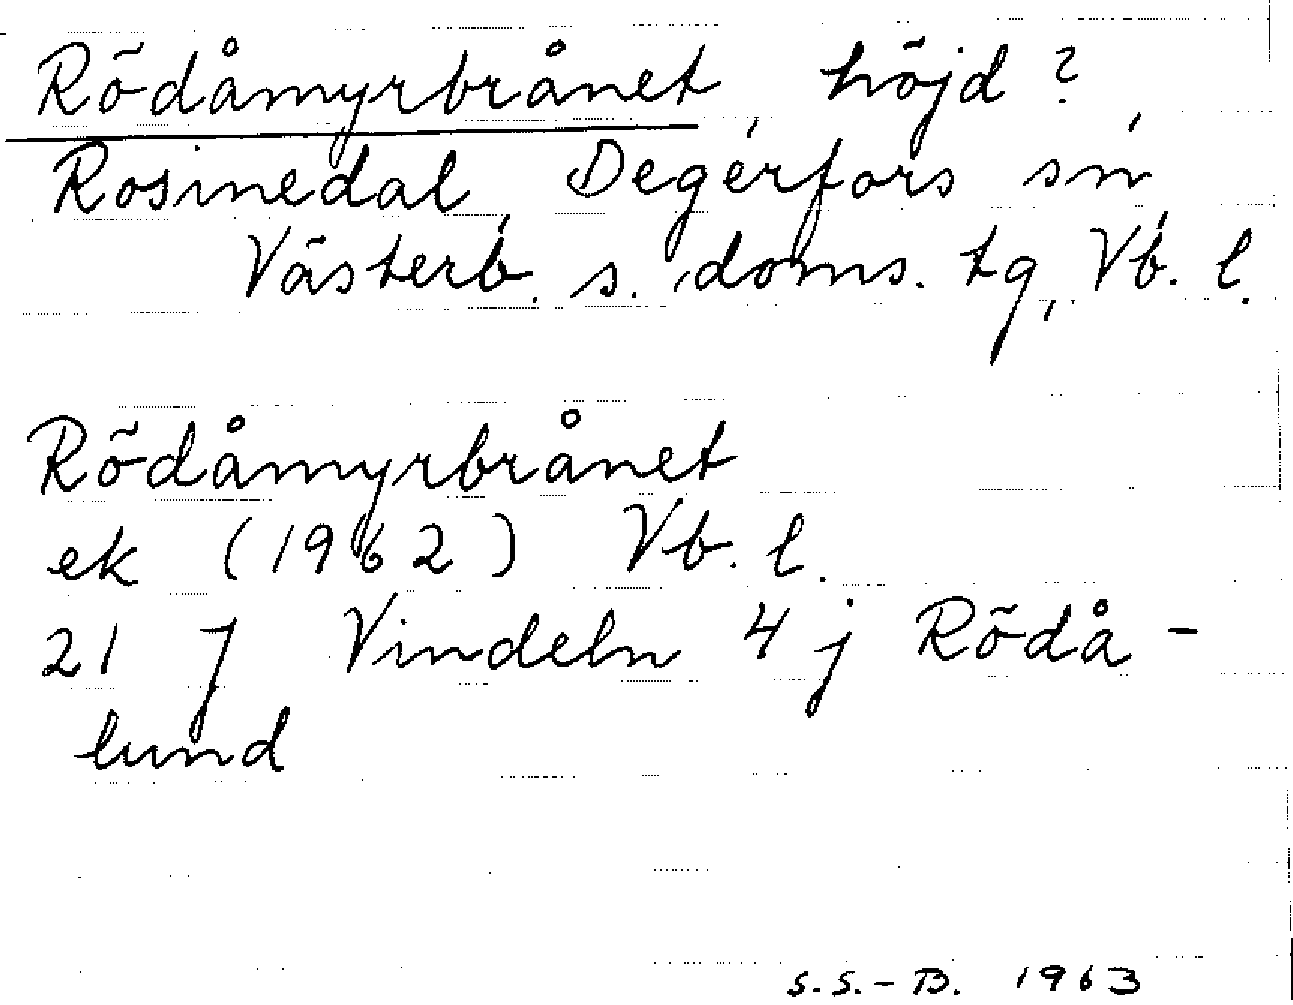 Rödåmyrbrånet, höjd?
Rosinedal, Degerfors sn,
Västerb. s. doms. tg, Vb. l.
Rödåmyrbrånet
ek (1962) Vb. l.
21 J Vindeln 4 j Rödå-
lund
S.S.-B. 1963